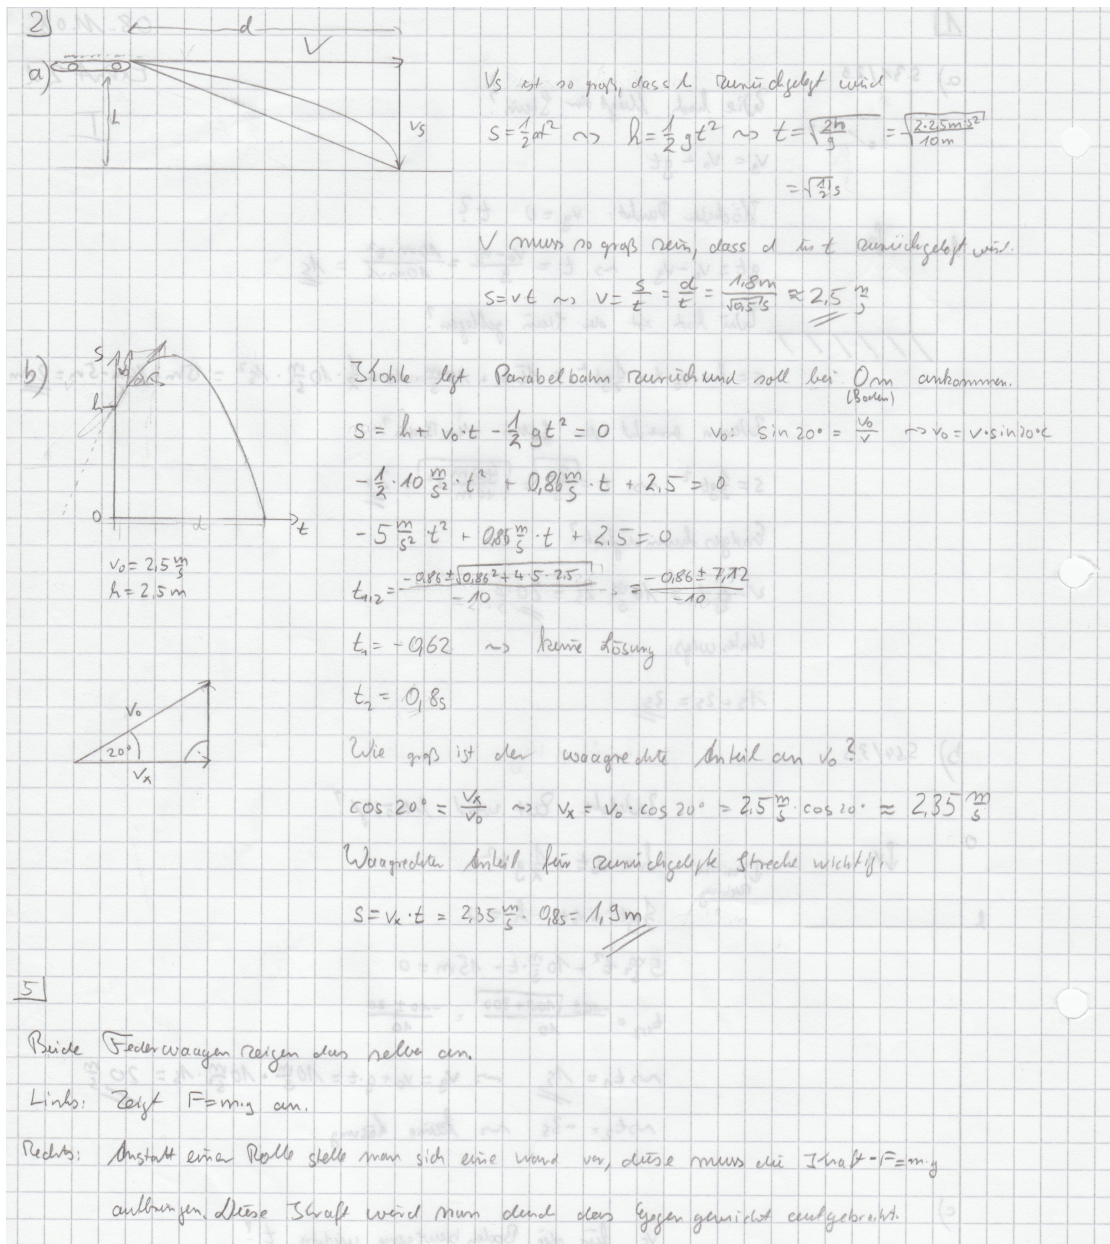 2)
d
V
a)
h
Vs
Vs ist so groß, dass h zurückgelegt wird
s = 1/2 at² ~> h = 1/2 gt² ~> t = √(2h/g) = √(2·2,5m·s²/10m)
= √(1/2) s
V muss so groß sein, dass d in t zurückgelegt wird.
s = vt ~> v = s/t = d/t = 1,8m/√0,5 s ≈ 2,5 m/s
b)
s
h
0
d
t
v₀ = 2,5 m/s
h = 2,5 m
Kohle legt Parabelbahn zurück und soll bei 0m ankommen.
(Boden)
s = h + v₀·t - 1/2 gt² = 0
v₀: sin 20° = v₀/v ~> v₀ = v·sin 20°
-1/2 · 10 m/s² · t² + 0,86 m/s · t + 2,5 = 0
-5 m/s² · t² + 0,86 m/s · t + 2,5 = 0
t₁,₂ = (-0,86 ± √(0,86² + 4·5·2,5))/-10 = (-0,86 ± 7,12)/-10
t₁ = -0,62 ~> keine Lösung
t₂ = 0,8s
v₀
20°
vₓ
Wie groß ist der waagrechte Anteil an v₀?
cos 20° = vₓ/v₀ ~> vₓ = v₀ · cos 20° = 2,5 m/s · cos 20° ≈ 2,35 m/s
Waagrechter Anteil für zurückgelegte Strecke wichtig.
s = vₓ · t = 2,35 m/s · 0,8s = 1,9m
5
Beide Federwaagen zeigen das selbe an.
Links: Zeigt F=m·g an.
Rechts: Anstatt einer Rolle stelle man sich eine wand vor, diese muss die Kraft -F=m·g
aufbringen. Diese Kraft wird nun durch das Gegengewicht aufgebracht.